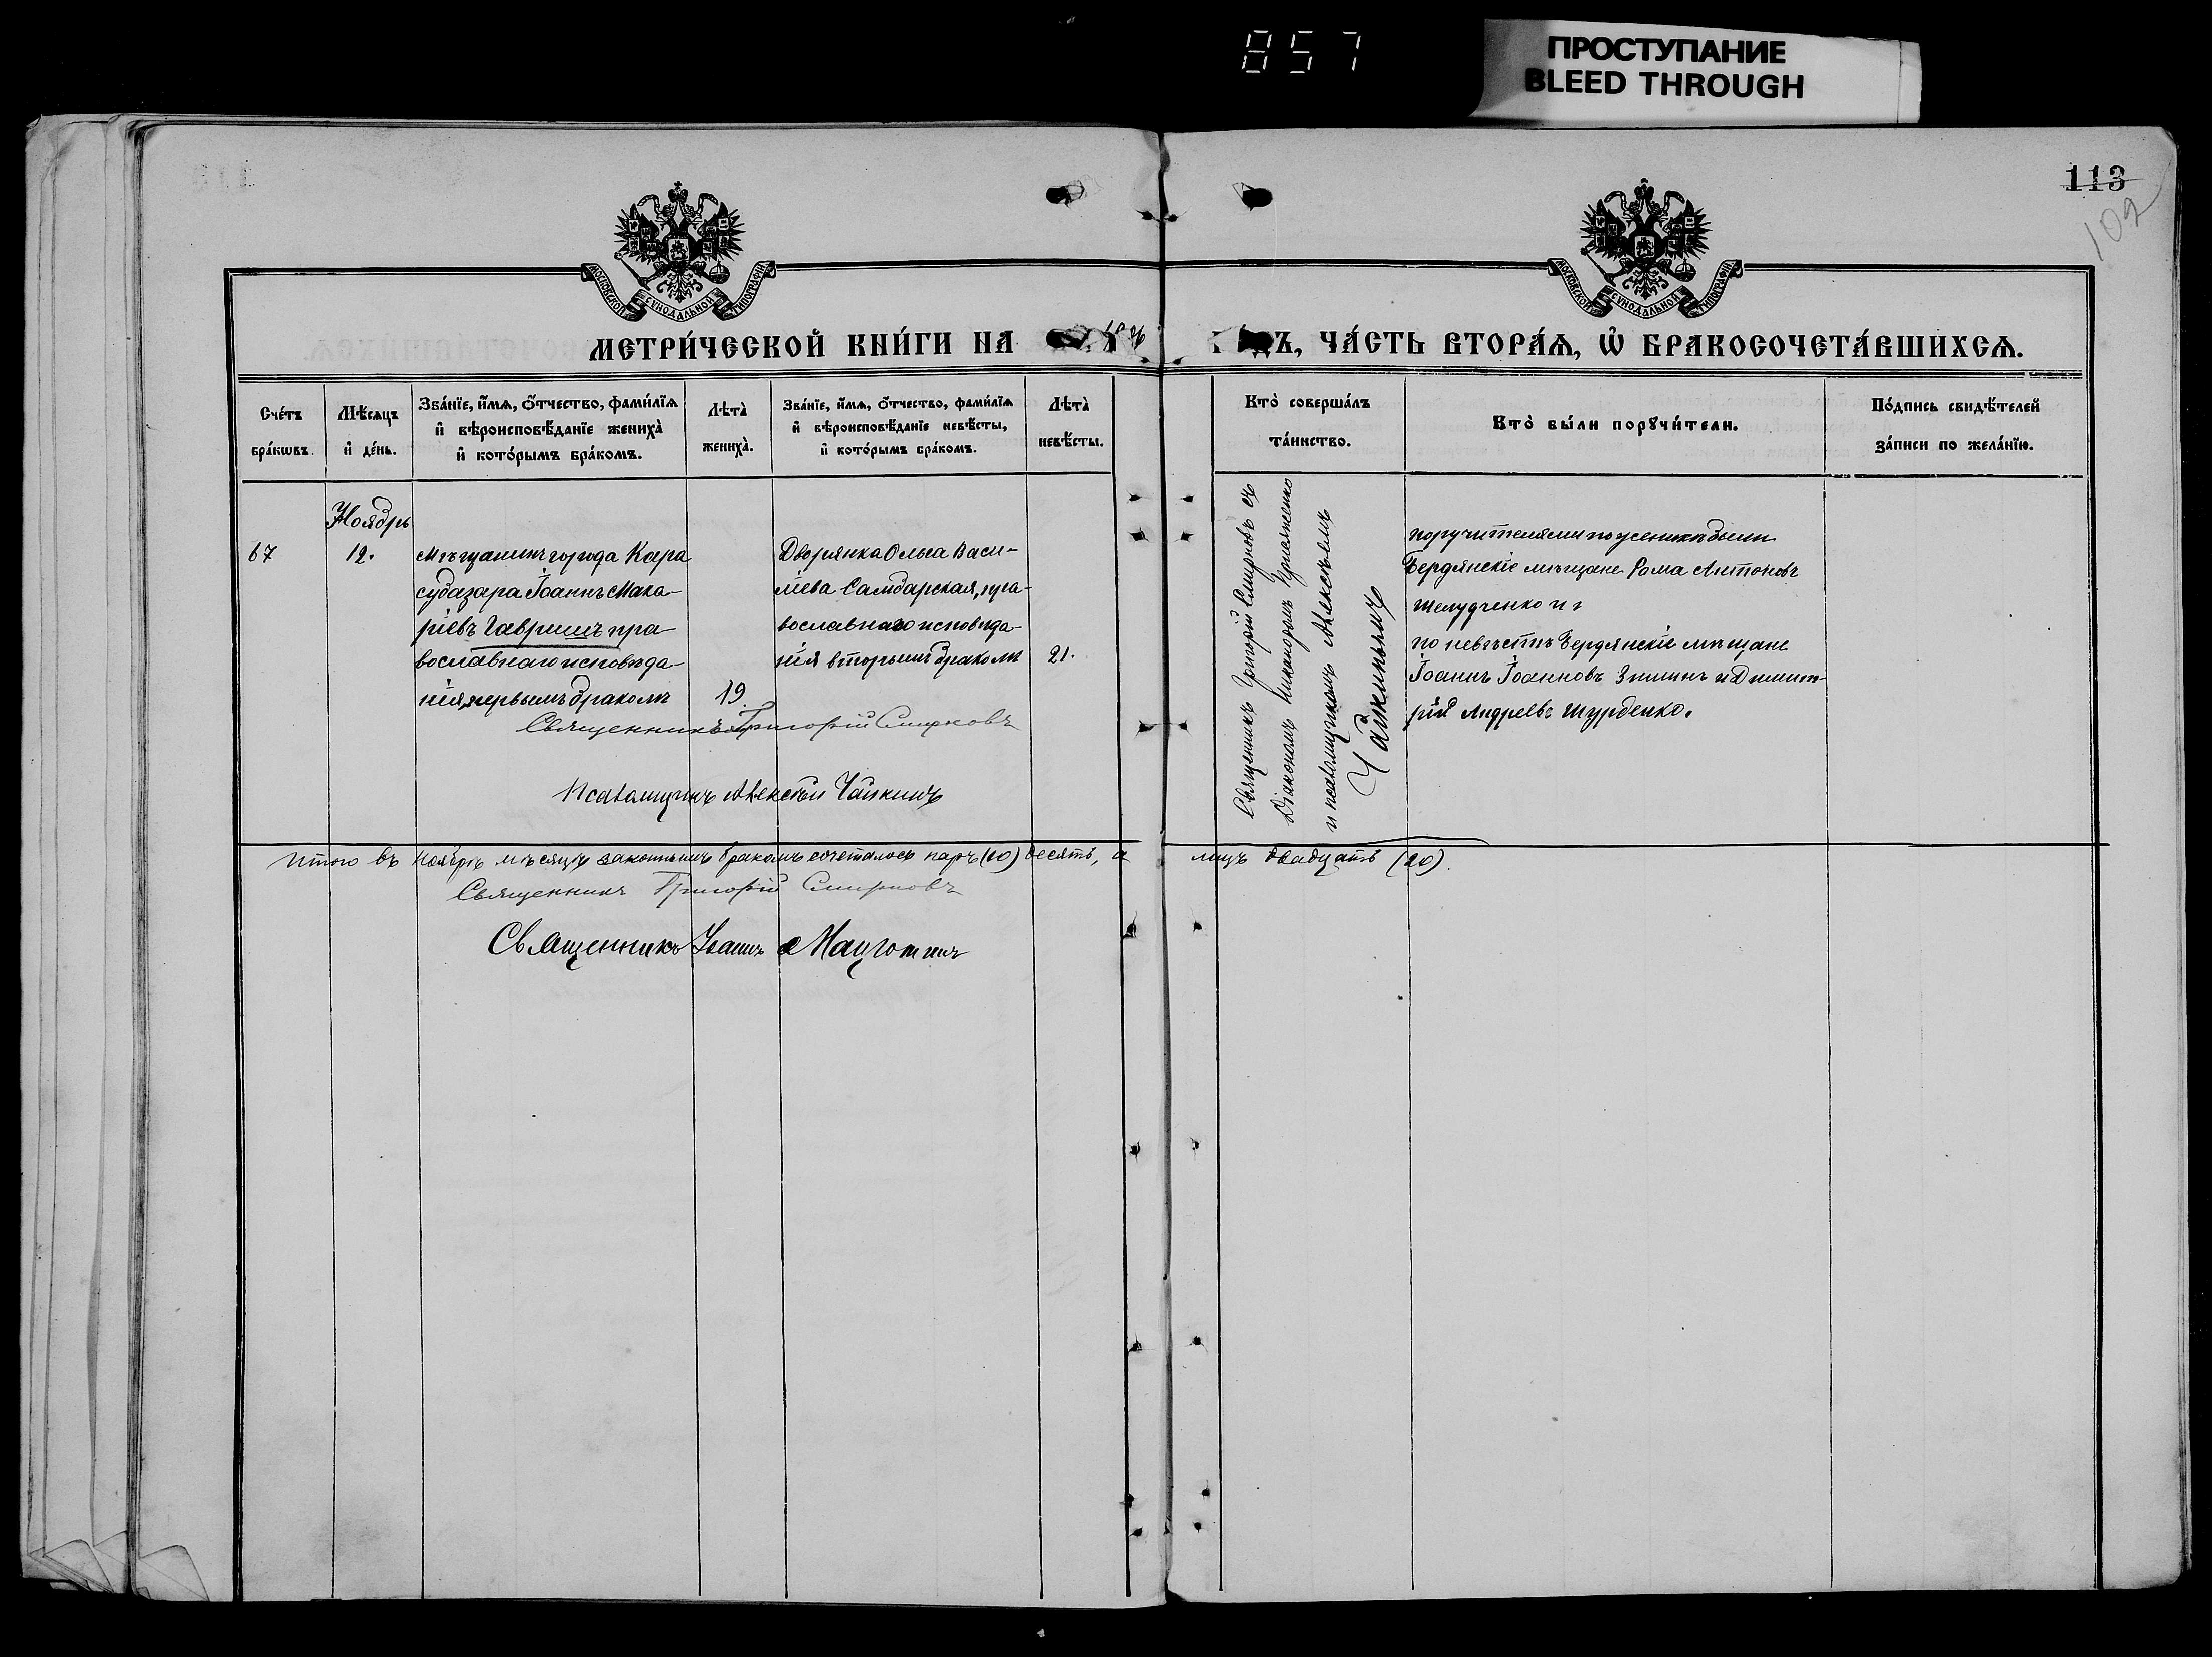 857
ПРОСТУПАНИЕ
BLEED THROUGH
113
102
МОСКОВСКОЙ СѴНОДАЛЬНОЙ ТИПОГРАФІИ
МОСКОВСКОЙ СѴНОДАЛЬНОЙ ТИПОГРАФІИ
МЕТРИ́ЧЕСКОЙ КНИ́ГИ НА
Ъ, ЧА́СТЬ ВТОРА́Ѧ, Ѡ҆ БРАКОСОЧЕТА́ВШИХСѦ.
Сче́тъ бра́кѡвъ.
Мѣ́сѧцъ и҆ де́нь.
Зва́нїе, и҆́мѧ, о҆́тчество, фами́лїѧ и҆ вѣроисповѣ́данїе жениха̀ и҆ кото́рымъ бра́комъ.
Лѣта̀ жениха̀.
Зва́нїе, и҆́мѧ, о҆́тчество, фами́лїѧ и҆ вѣроисповѣ́данїе невѣ́сты, и҆ кото́рымъ бра́комъ.
Лѣта̀ невѣ́сты.
Кто̀ соверша́лъ та́инство.
Кто̀ бы́ли порꙋчи́тели.
По́дпись свидѣ́телей за́писи по жела́нїю.
Ноябрь
67
12.
Мѣщанинъ города Кара
субазара Іоаннъ Мака-
ріевъ Гавришъ пра
вославнаго исповѣда-
нія, первымъ бракомъ
19.
Дворянка Ольга Васи-
ліева Самбарская, пра-
вославнаго исповѣда-
нія вторымъ бракомъ
21.
Священникъ Григорій Смирновъ съ
Діакономъ Никаноромъ
и псаломщикомъ Алексѣемъ
Чайкинымъ
поручителями по женихѣ были
Бердянскіе мѣщане Ѳома Антоновъ
Желудченко и
по невѣстѣ Бердянскіе мѣщане
Іоаннъ Іоанновъ Зиминъ и Димит-
рій Андреевъ Шурбенко.
Священникъ Григорій Смирновъ
Псаломщикъ Алексѣй Чайкинъ
Итого въ Ноябрѣ мѣсяцѣ законнымъ бракомъ сочеталось паръ (10) десять, а лицъ двадцать (20).
Священникъ Григорій Смирновъ
Священникъ Іоаннъ